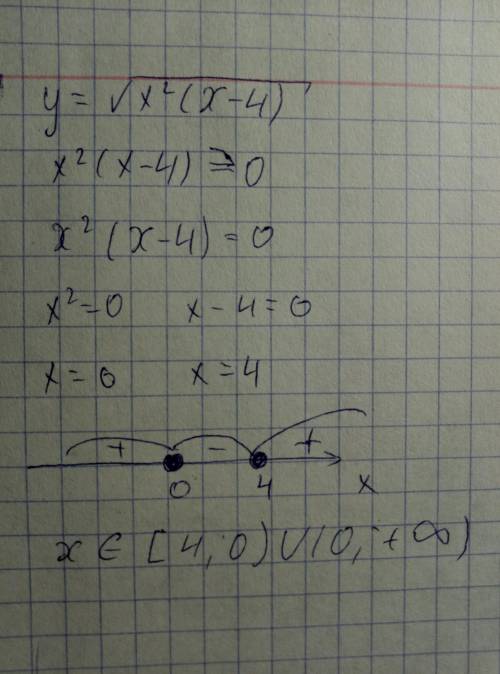 y = √x²(x-4)
x²(x-4) ⩾ 0
x²(x-4) = 0
x² = 0 x - 4 = 0
x = 0 x = 4
+ - +
0 4 x
x ∈ [4; 0) ∪ (0; +∞)